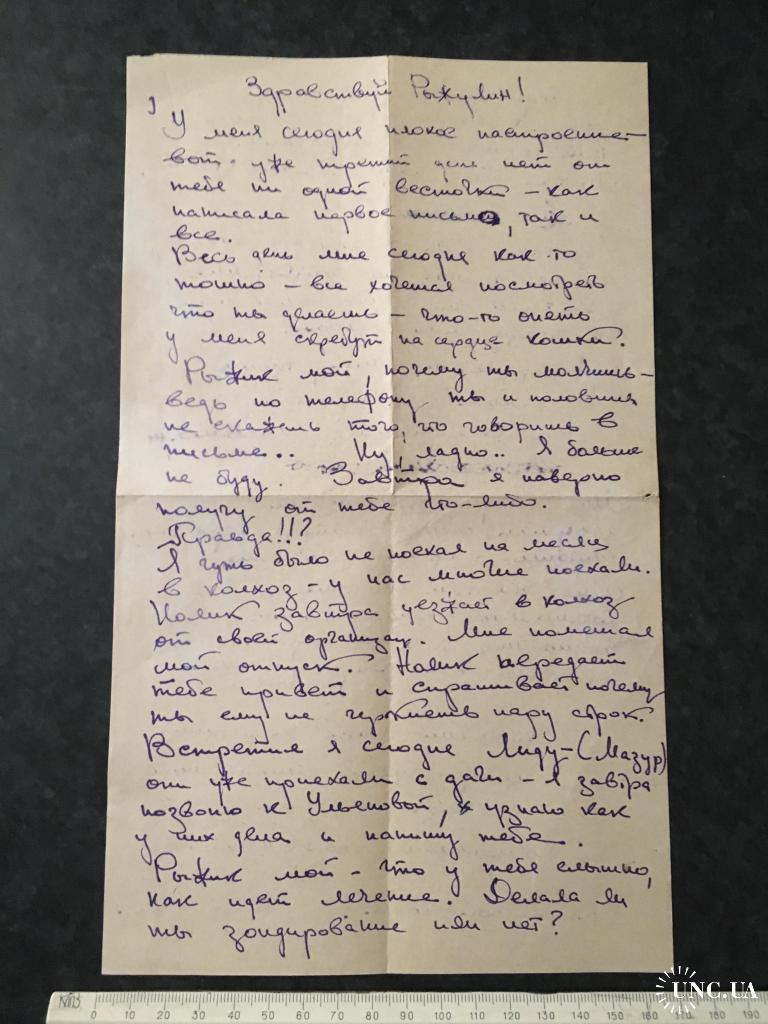 Здравствуй Рыжулин!
У меня сегодня плохое настроение –
вот уже третий день нет от
тебе ни одной весточки – как
написала первое письмо, так и
все.
Весь день мне сегодня как-то
тошно – все хочется посмотреть
что ты делаешь – что-то опять
у меня скребут на сердце кошки.
Рыжик мой, почему ты молчишь –
ведь по телефону ты и половины
не скажешь того, что говоришь в
письме.. Ну, ладно.. Я больше
не буду. Завтра я наверно
получу от тебе что-либо.
Правда!!?
Я чуть было не поехал на месяц
в колхоз – у нас многие поехали.
завтра уезжает в колхоз
от своей организац. Мне помешал
мой отпуск. передает
тебе привет и спрашивает почему
ты ему не черкнешь пару строк.
Встретил я сегодня Лиду – (Мазур)
они уже приехали с дачи – Я завтра
позвоню к Ульяновой, узнаю как
у них дела и напишу тебе.
Рыжик мой – что у тебе слышно,
как идет лечение. Делала ли
ты зондирование или нет?
0 10 20 30 40 50 60 70 80 90 100 110 120 130 140 150 160 170 180 190
UNC.UA